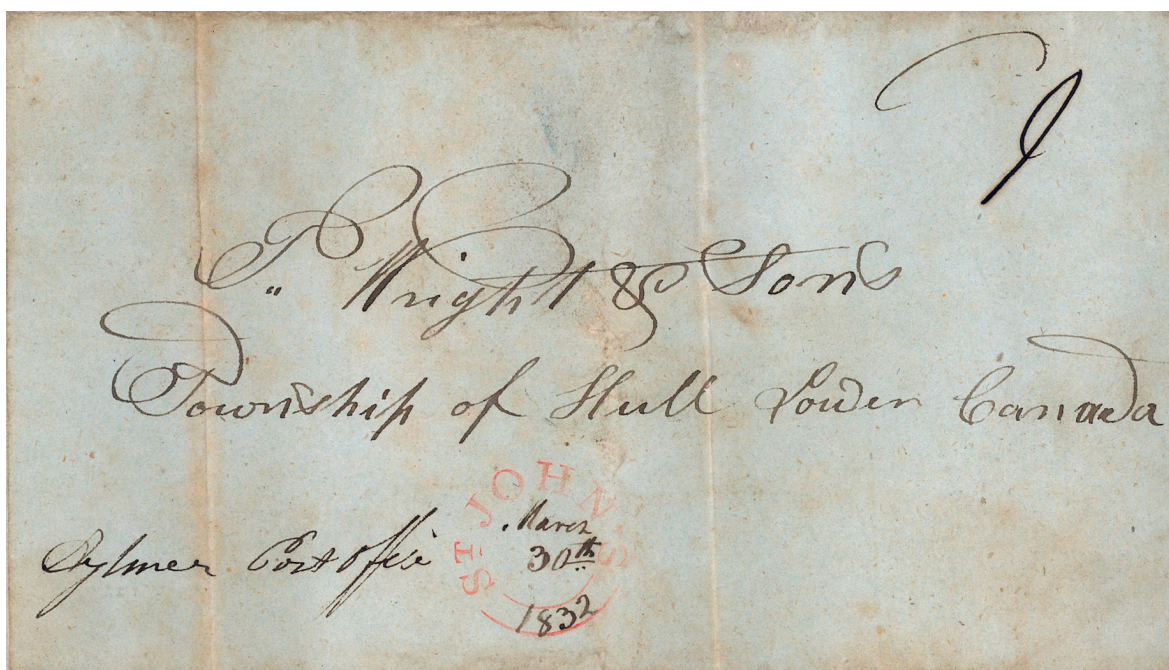 P. Wright & Sons
Township of Hull Lower Canada
Aylmer Post Office
ST JOHN'S
March
30th
1832